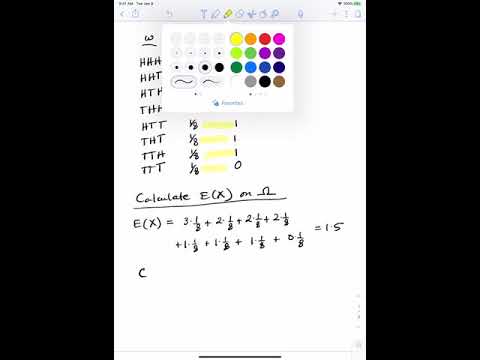 9:41 AM Tue Jan 9
100%
ω
HHH
HHT
HTH
THH
HTT 1/8 1
THT 1/8 1
TTH 1/8 1
TTT 1/8 0
Favorites
Calculate E(X) on Ω
E(X) = 3·1/8 + 2·1/8 + 2·1/8 + 2·1/8
+ 1·1/8 + 1·1/8 + 1·1/8 + 0·1/8 = 1.5
C